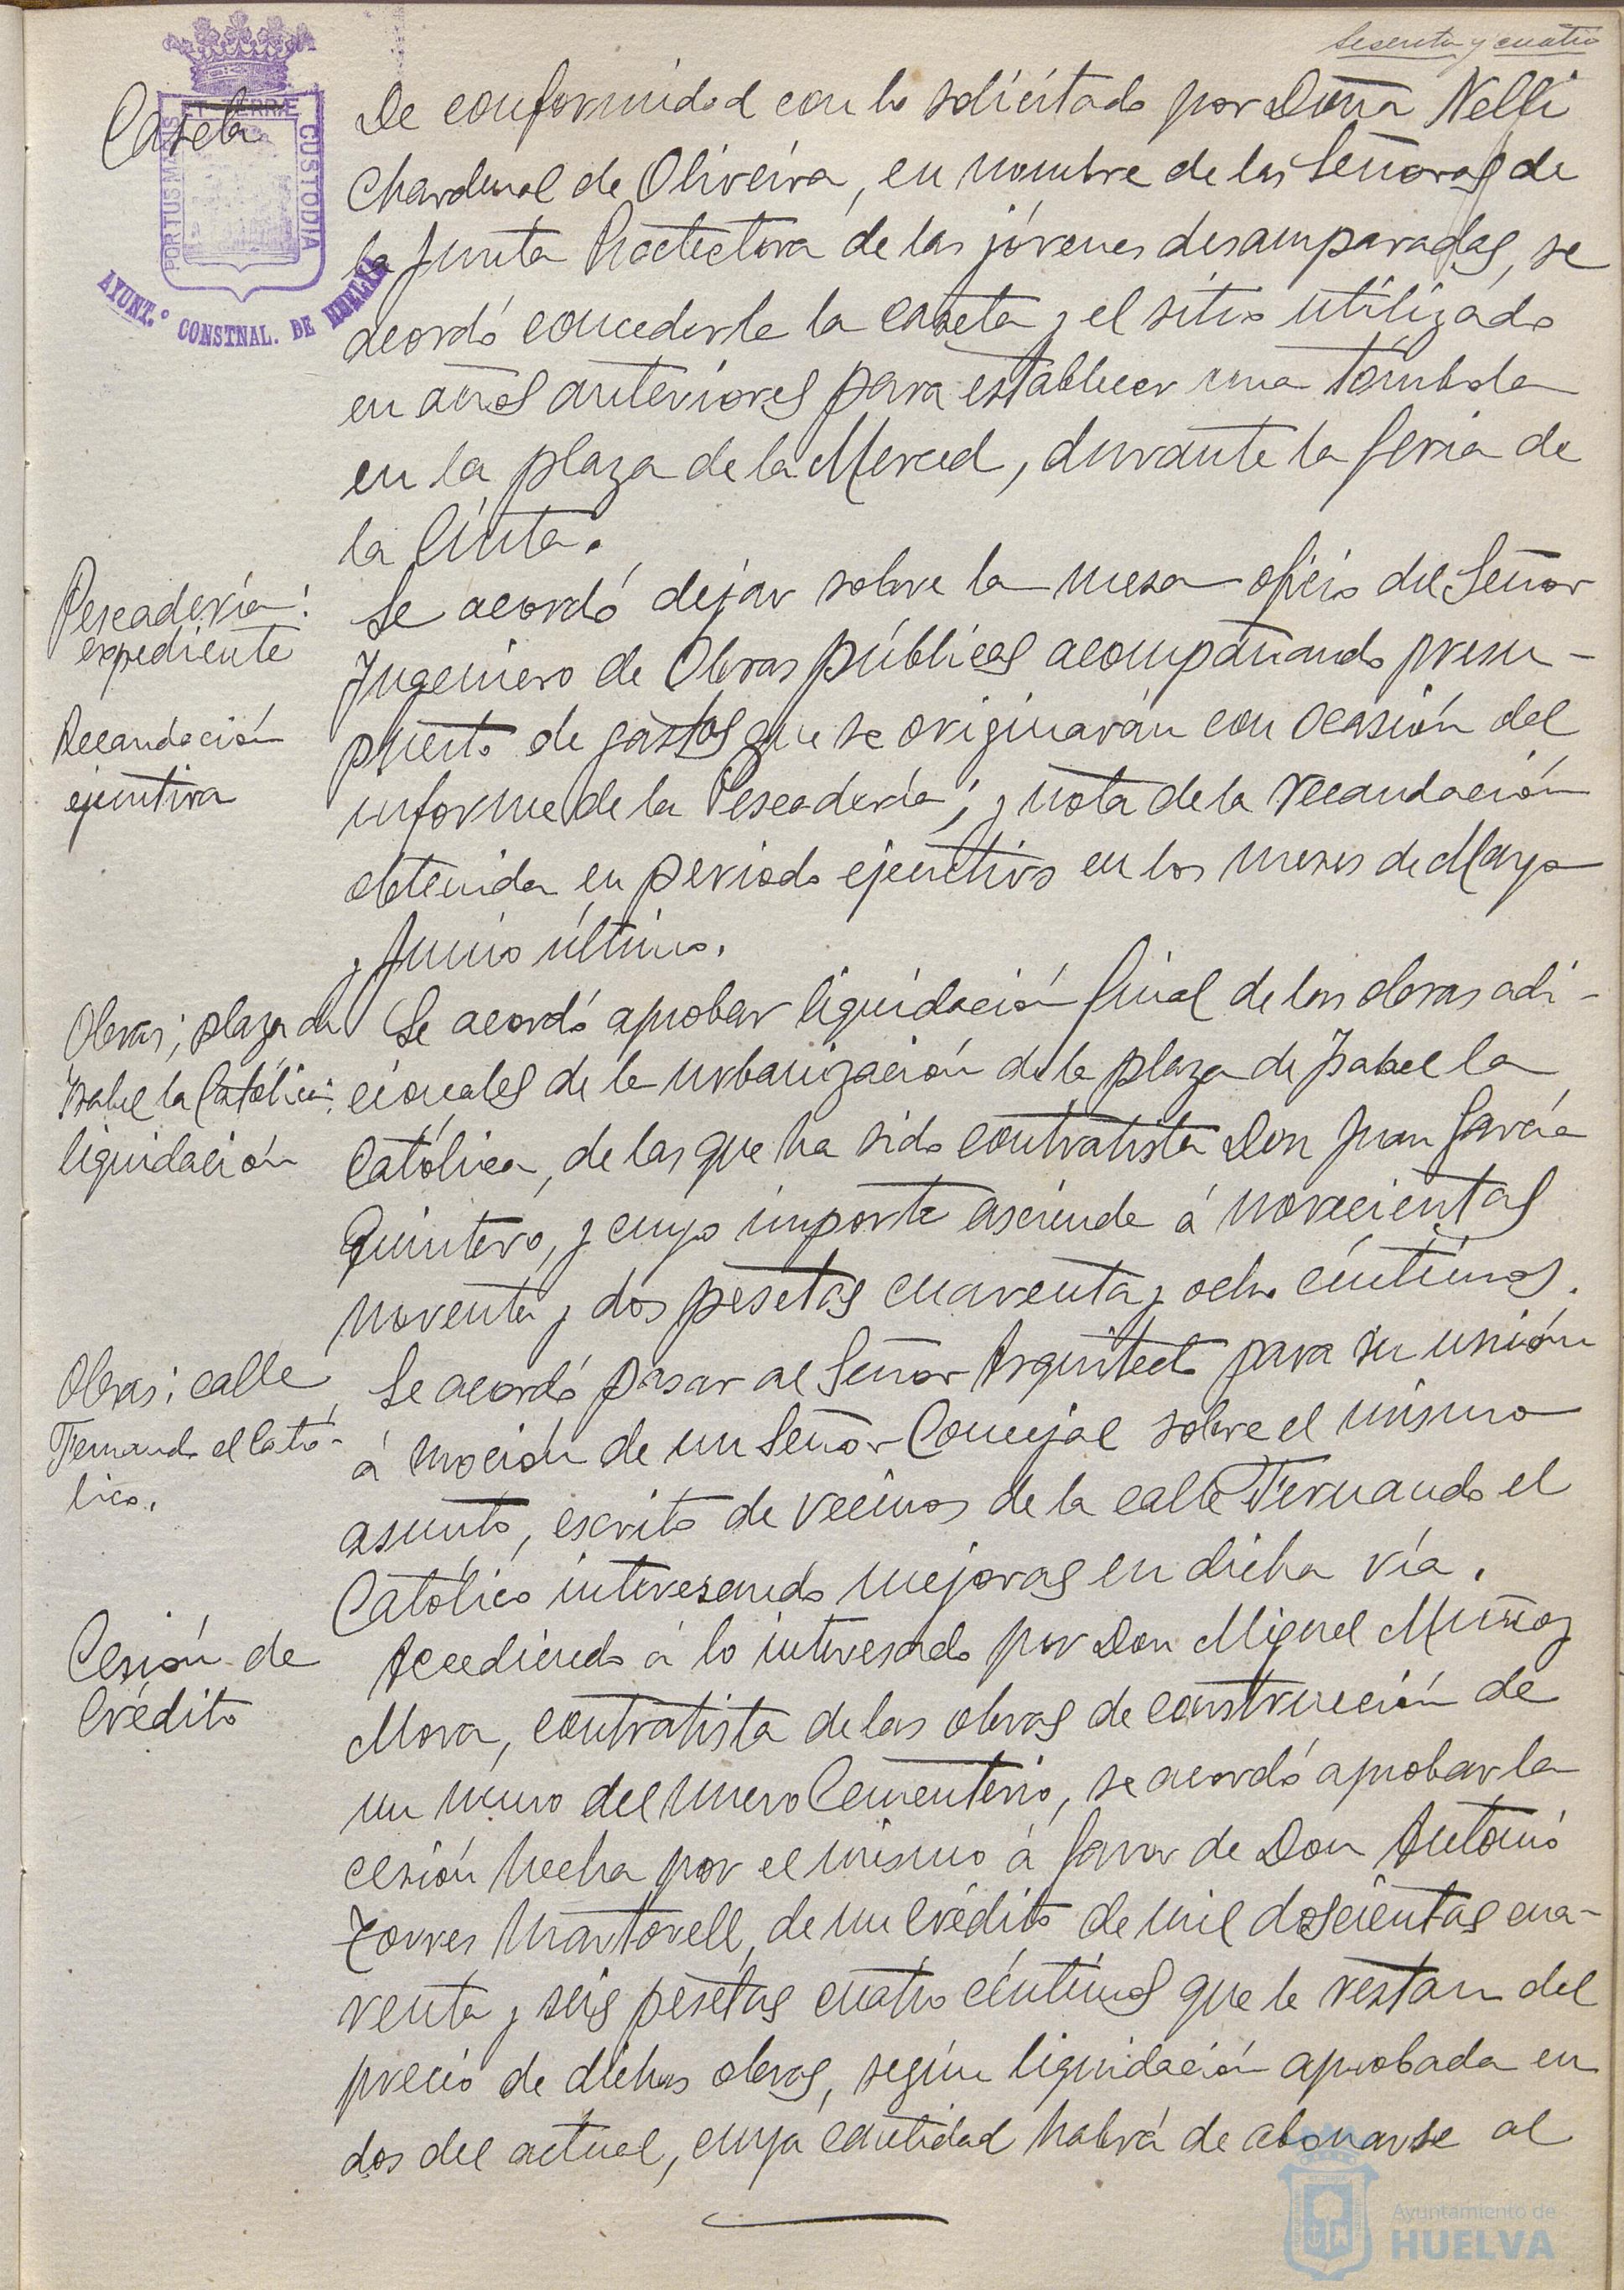 sesenta y cuatro
Caseta
ET TERRÆ
PORTUS MARIS
CUSTODIA
AYUNT.º CONSTNAL. DE HUELVA
De conformidad con lo solicitado por Doña Nelli
Chardenal de Oliveira, en nombre de las Señoras de
la Junta Protectora de las jóvenes desamparadas, se
acordó concederle la caseta y el sitio utilizado
en años anteriores para establecer una tómbola
en la plaza de la Merced, durante la feria de
la Cinta.
Pescadería:
expediente
Se acordó dejar sobre la mesa oficio del Señor
Ingeniero de Obras públicas acompañando presu-
Recaudación
ejecutiva
puesto de gastos que se originarán con ocasión del
informe de la Pescadería; y nota de la recaudación
obtenida en periodo ejecutivo en los meses de Mayo
y Junio último.
Obras; plaza de
Isabel la Católica:
liquidación
Se acordó aprobar liquidación final de las obras adi-
cionales de la urbanización de la plaza de Isabel la
Católica, de las que ha sido contratista Don Juan García
Quintero, y cuyo importe asciende á novecientas
noventa y dos pesetas cuarenta y ocho céntimos.
Obras: calle
Fernando el Cató-
lico.
Se acordó pasar al Señor Arquitecto para su unión
á moción de un Señor Concejal sobre el mismo
asunto, escrito de vecinos de la calle Fernando el
Católico interesando mejoras en dicha vía.
Cesión de
Crédito
Accediendo á lo interesado por Don Miguel Muñoz
Mora, contratista de las obras de construcción de
un muro del nuevo Cementerio, se acordó aprobar la
cesión hecha por el mismo á favor de Don Antonio
Torres Martorell, de un crédito de mil doscientas cua-
renta y seis pesetas cuatro céntimos que le restan del
precio de dichas obras, según liquidación aprobada en
dos del actual, cuya cantidad habrá de abonarse al
Ayuntamiento de
HUELVA